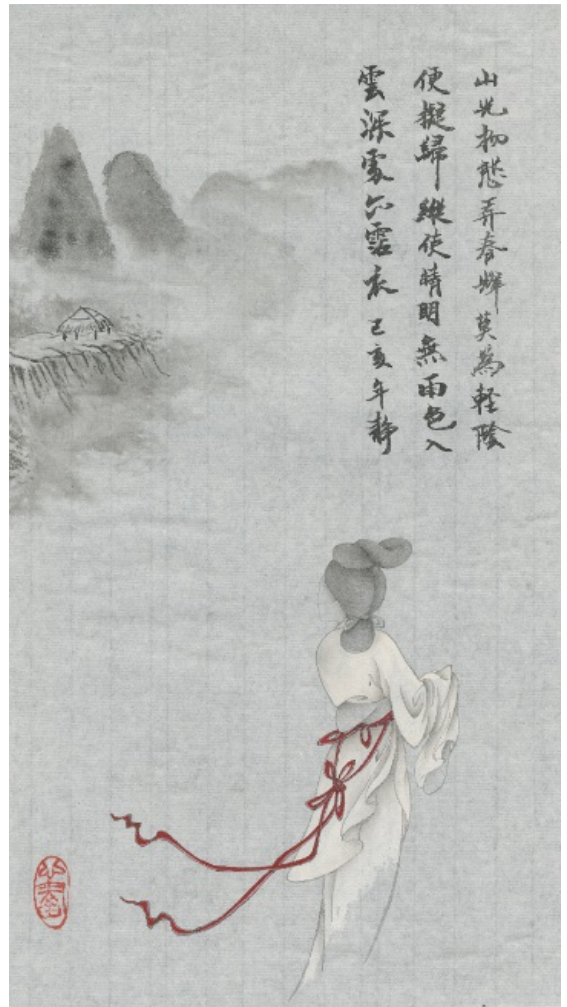 山光物態弄春輝莫為輕陰
便擬歸 縱使晴明無雨色入
雲深處亦霑衣 己亥年靜